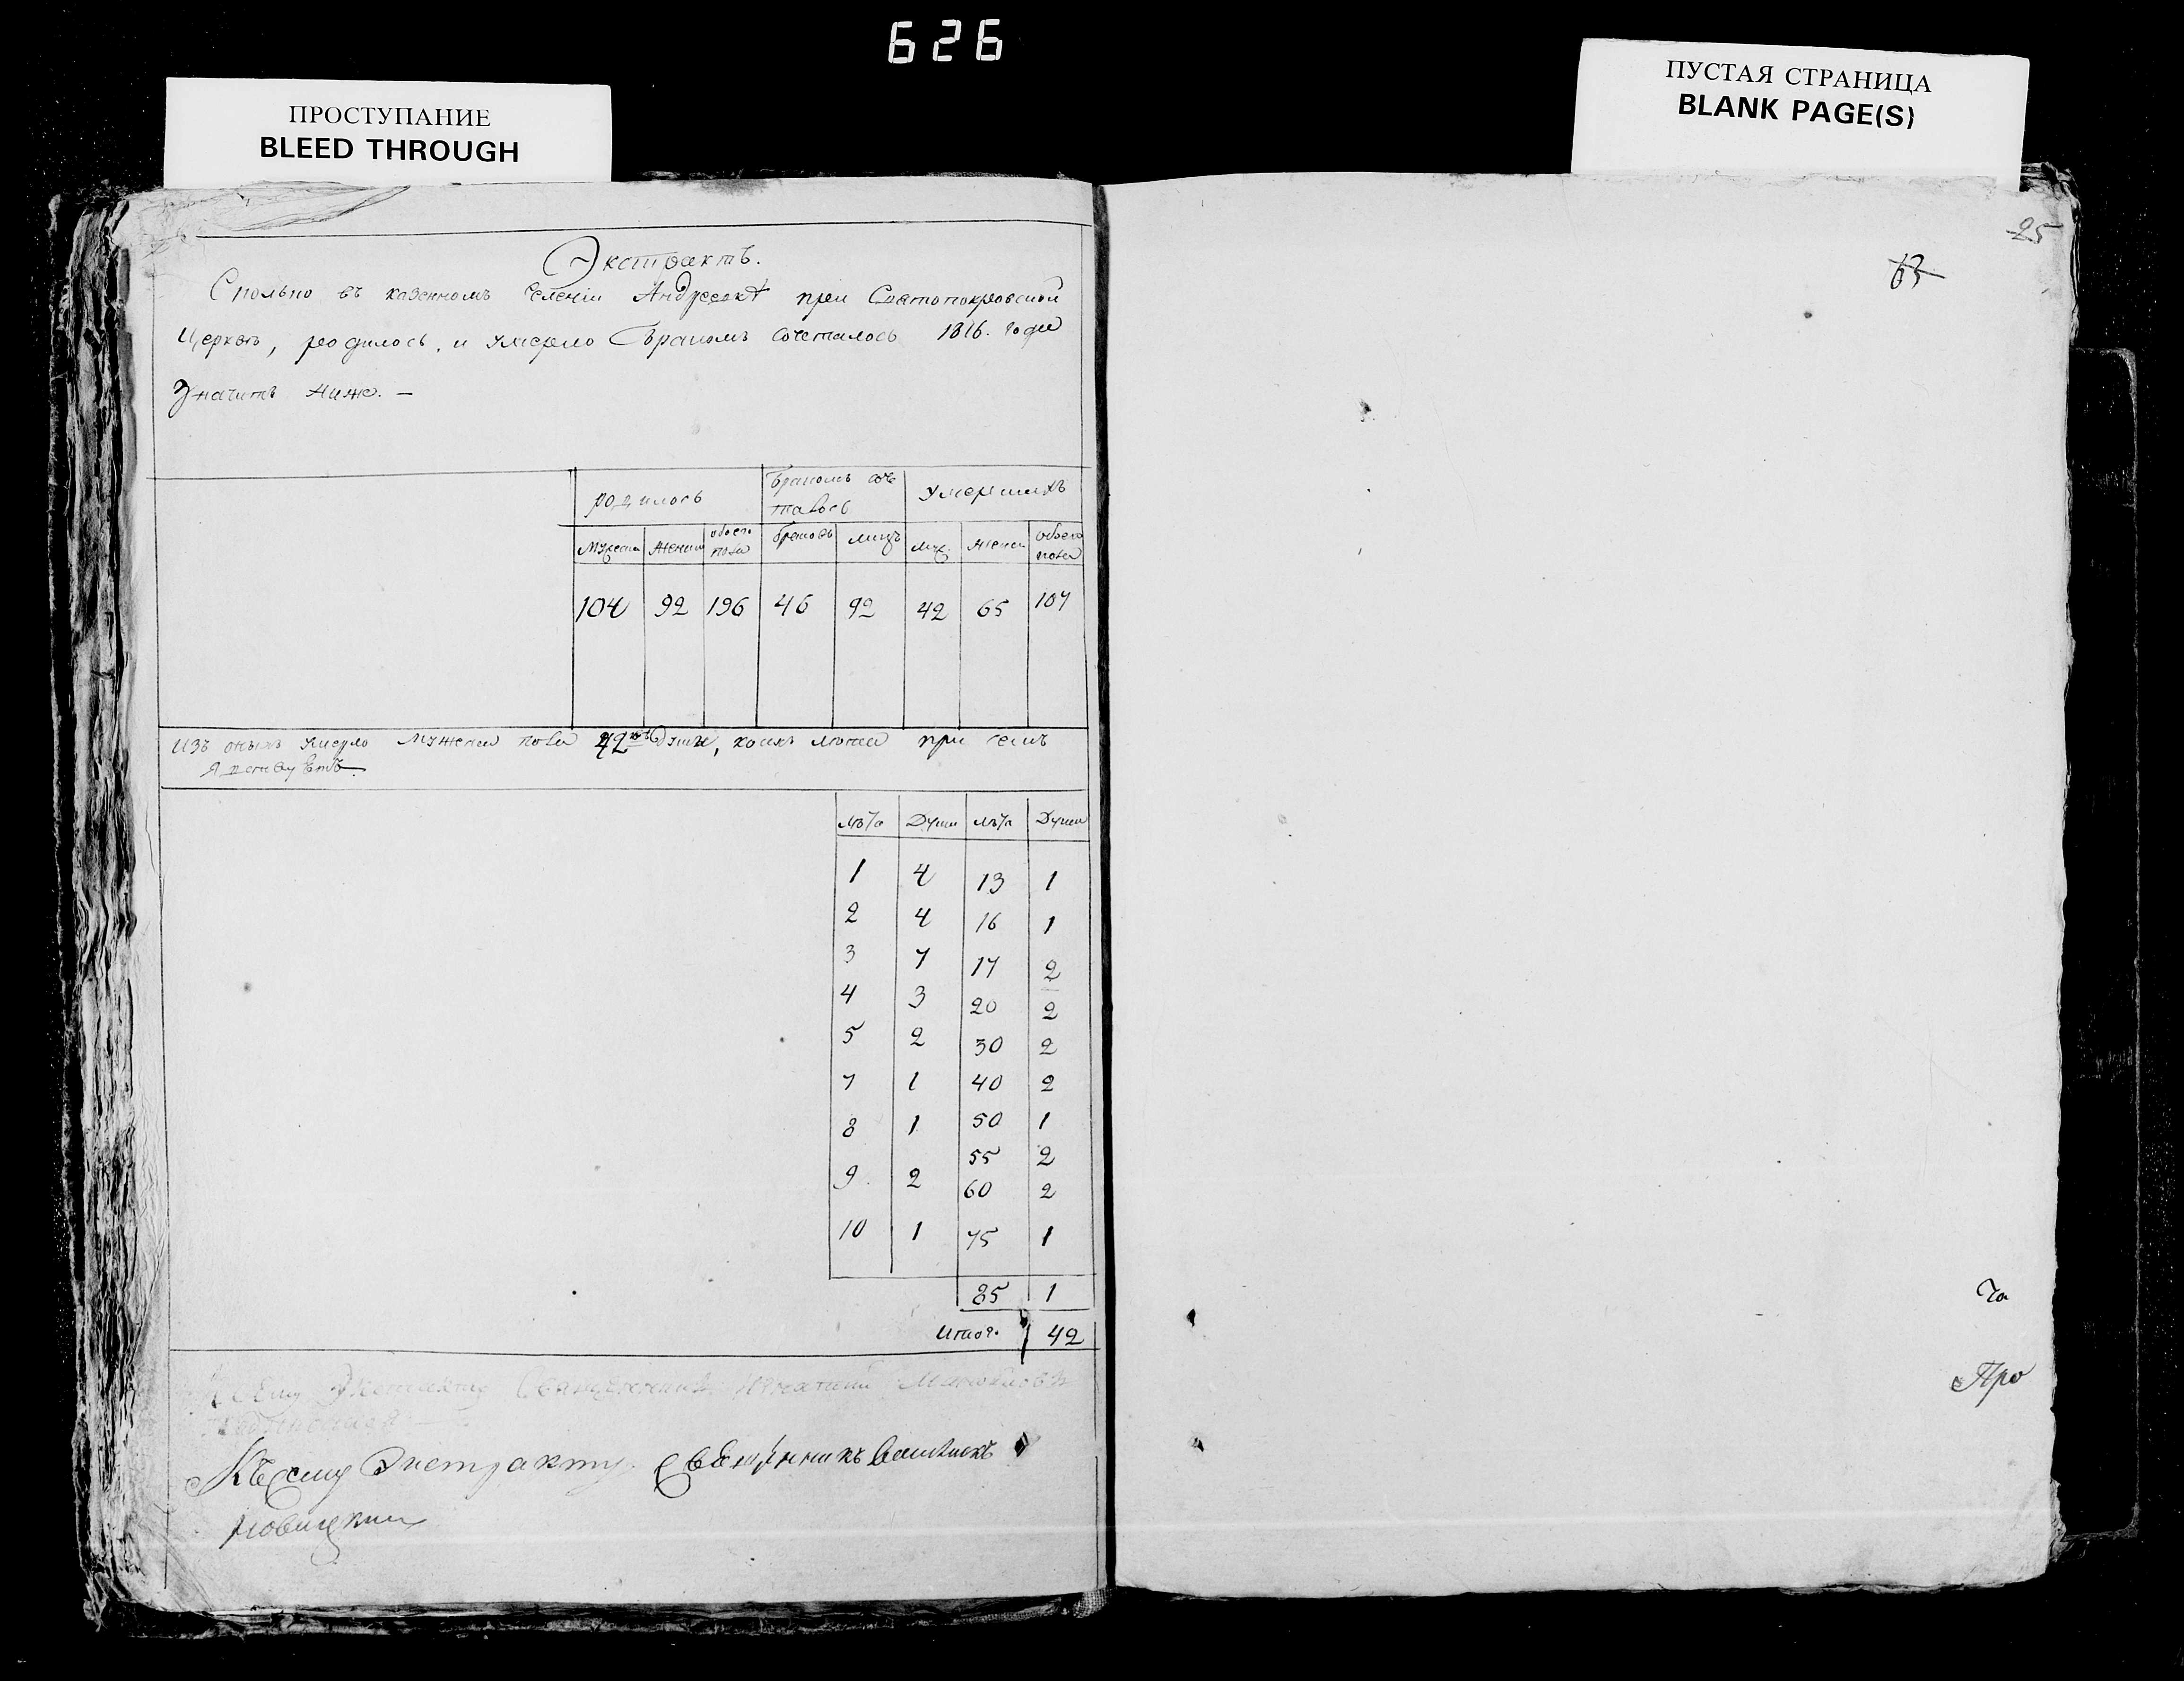 626
ПРОСТУПАНИЕ
BLEED THROUGH
ПУСТАЯ СТРАНИЦА
BLANK PAGE(S)
25
Экстрактъ.
Сколько въ казенномъ селеніи Андреевкѣ при Святопокровской
Церквѣ, родилось, и умерло Бракомъ сочеталось 1816. года
Значитъ ниже. —
родилось
Бракомъ соче
талось
Умершихъ
Мужеска Женска обоего пола браковъ лицъ муж. женск обоего пола
104 92 196 46 92 42 65 107
Изъ оныхъ умерло мужеска пола 42 душъ, коихъ лѣта при семъ
лѣта Души лѣта Души
1 4 13 1
2 4 16 1
3 7 17 2
4 3 20 2
5 2 30 2
7 1 40 2
8 1 50 1
55 2
9. 2 60 2
10 1 75 1
85 1
Итого. 42
Къ сему Экстракту Священникъ
Къ сему Экстракту Священникъ
Новицкии
Ча
Про